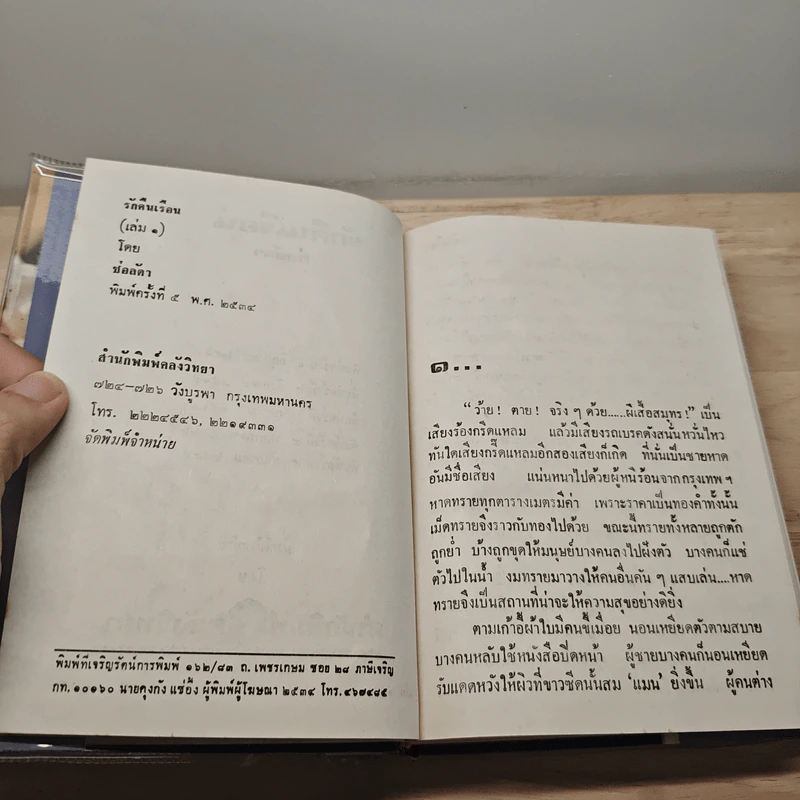 รักคืนเรือน
(เล่ม ๑)
โดย
ช่อลัดา
พิมพ์ครั้งที่ ๕ พ.ศ. ๒๕๓๔
สำนักพิมพ์คลังวิทยา
๗๒๔–๗๒๖ วังบูรพา กรุงเทพมหานคร
โทร. ๒๒๒๔๕๔๖, ๒๒๑๙๓๓๑
จัดพิมพ์จำหน่าย
พิมพ์ที่เจริญรัตน์การพิมพ์ ๑๖๒/๘๓ ถ. เพชรเกษม ซอย ๒๘ ภาษีเจริญ
กท. ๑๐๑๖๐ นายคุงกัง แซ่อึ้ง ผู้พิมพ์ผู้โฆษณา ๒๕๓๔ โทร. ๔๖๗๔๘๕
๑...
“ว้าย! ตาย! จริง ๆ ด้วย.....ผีเสื้อสมุทร!” เป็น
เสียงร้องกรีดแหลม แล้วมีเสียงรถเบรคดังสนั่นหวั่นไหว
ทันใดเสียงกรี๊ดแหลมอีกสองเสียงก็เกิด ที่นั่นเป็นชายหาด
อันมีชื่อเสียง แน่นหนาไปด้วยผู้หนีร้อนจากกรุงเทพ ฯ
หาดทรายทุกตารางเมตรมีค่า เพราะราคาเป็นทองคำทั้งนั้น
เม็ดทรายจึงราวกับทองไปด้วย ขณะนี้ทรายทั้งหลายถูกตัก
ถูกย่ำ บ้างถูกขุดให้มนุษย์บางคนลงไปฝังตัว บางคนก็แช่
ตัวไปในน้ำ งมทรายมาวางให้คนอื่นคัน ๆ แสบเล่น....หาด
ทรายจึงเป็นสถานที่น่าจะให้ความสุขอย่างดียิ่ง
ตามเก้าอี้ผ้าใบมีคนขี้เมื่อย นอนเหยียดตัวตามสบาย
บางคนหลับใช้หนังสือปิดหน้า ผู้ชายบางคนก็นอนเหยียด
รับแดดหวังให้ผิวที่ขาวซีดนั้นสม ‘แมน’ ยิ่งขึ้น ผู้คนต่าง